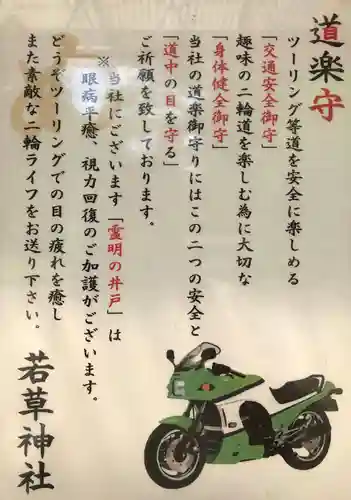 道楽守
ツーリング等道を安全に楽しめる
「交通安全御守」
趣味の二輪道を楽しむ為に大切な
「身体健全御守」
当社の道楽御守りにはこの二つの安全と
「道中の目を守る」
ご祈願を致しております。
※当社にございます「霊明の井戸」は
眼病平癒、視力回復のご加護がございます。
どうぞツーリングでの目の疲れを癒し
また素敵な二輪ライフをお送り下さい。
若草神社